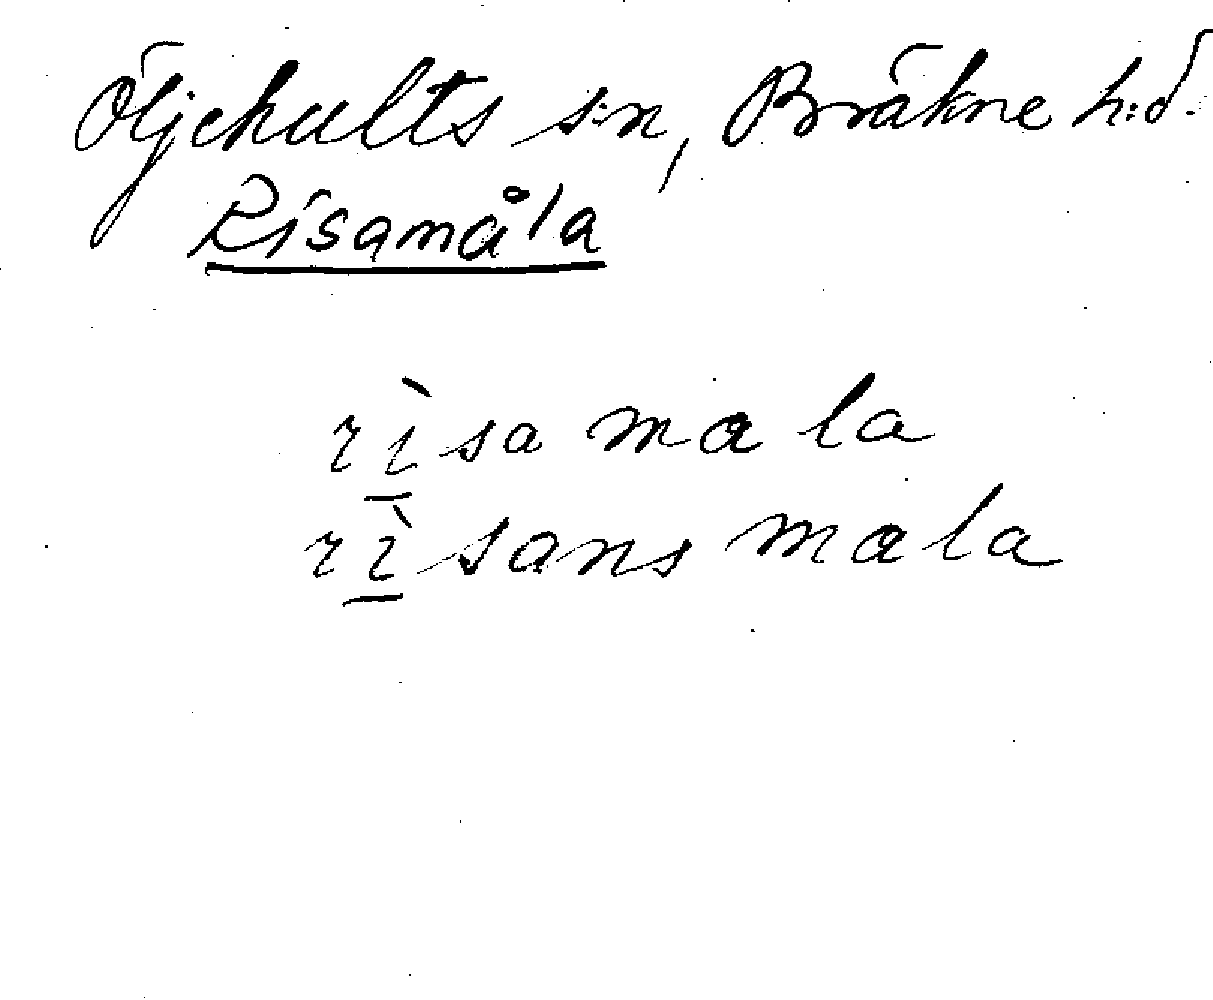 Öljehults s:n, Bräkne h:d.
Risamåla
rìsa mala
rìsans mala